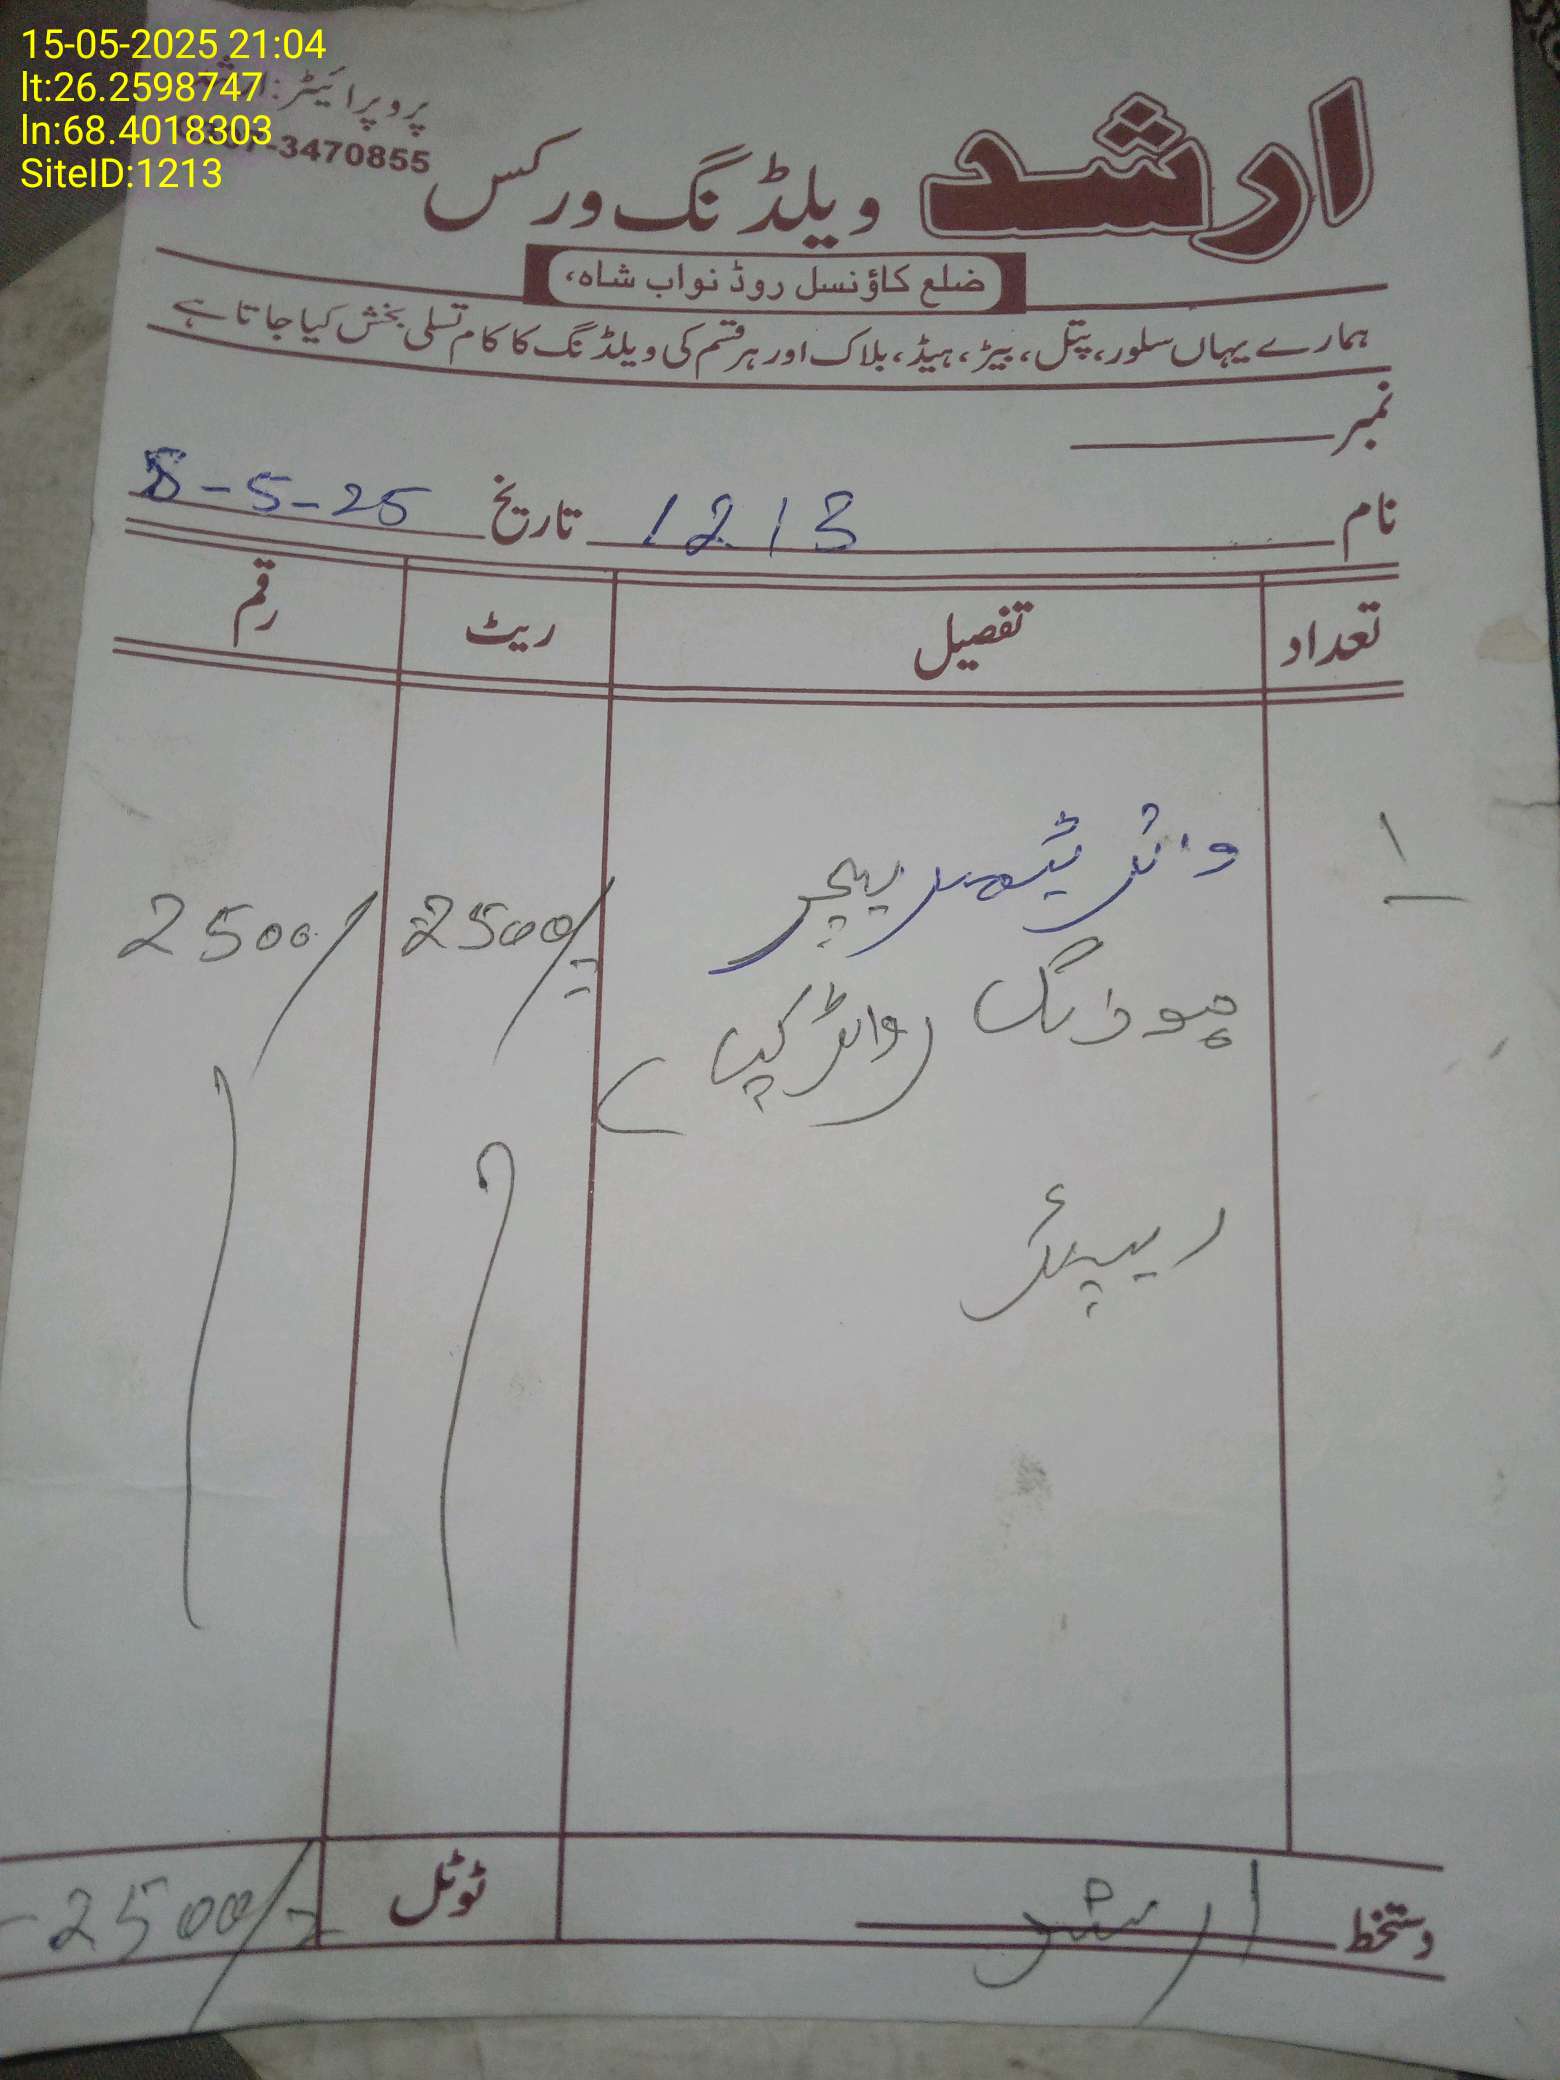 15-05-2025 21:04
lt:26.2598747
ln:68.4018303
SiteID:1213
پروپرائیٹر:
-3470855
ارشد ویلڈنگ ورکس
ضلع کاؤنسل روڈ نواب شاہ،
ہمارے یہاں سلور، پتل، بیڑ، ہیڈ، بلاک اور ہر قسم کی ویلڈنگ کا کام تسلی بخش کیا جاتا ہے
نمبر
نام 1213 تاریخ 8-5-25
تعداد تفصیل ریٹ رقم
1 واٹر ٹیمپریچر 2500/= 2500/
ہوزنگ
ریپئر
دستخط ارشد ٹوٹل 2500/=